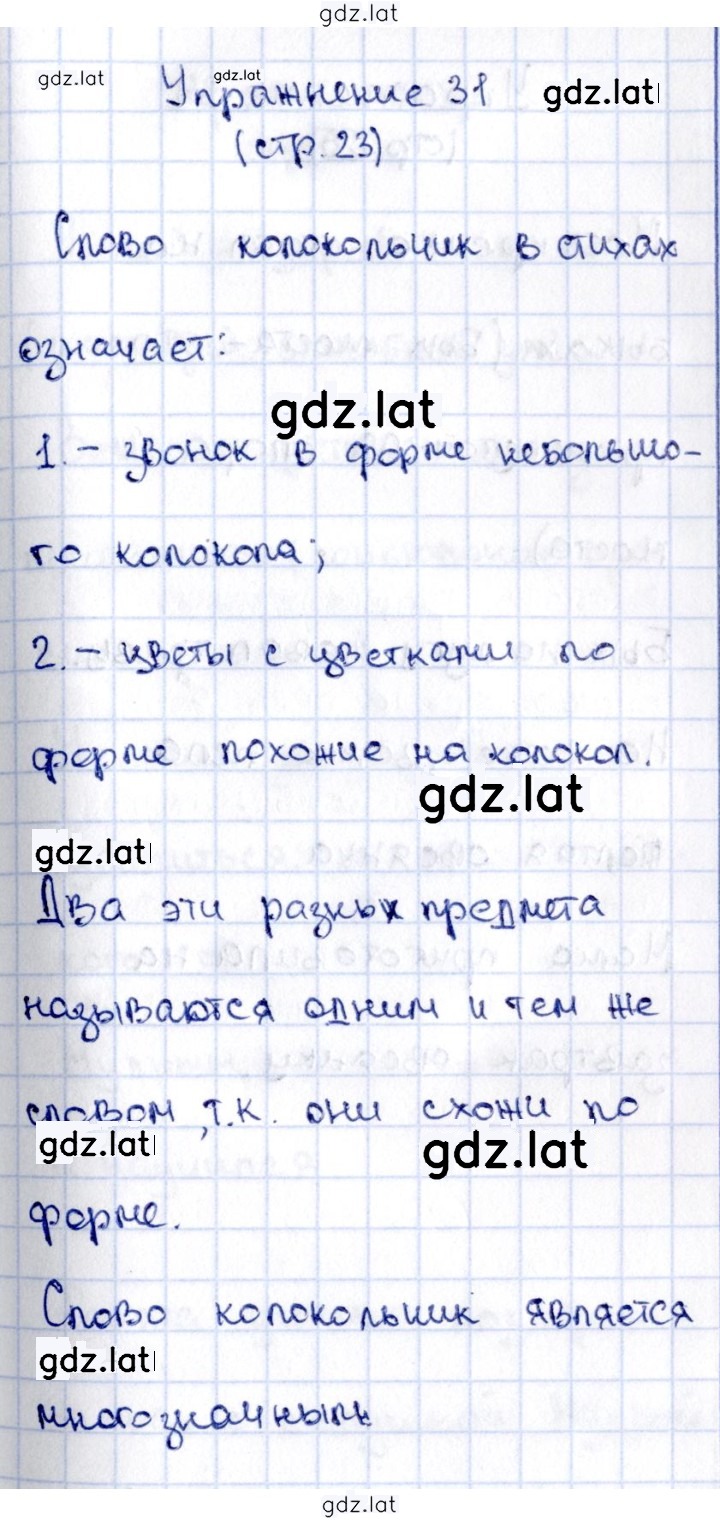 gdz.lat
gdz.lat gdz.lat Упражнение 31 gdz.lat
(стр. 23)
Слово колокольчик в стихах
означает:
gdz.lat
1. – звонок в форме небольшо-
го колокола;
2. – цветы с цветками по
форме похожие на колокол.
gdz.lat
gdz.lat
Два эти разных предмета
называются одним и тем же
словом, т.к. они схожи по
gdz.lat gdz.lat
форме.
Слово колокольчик является
gdz.lat
многозначным
gdz.lat